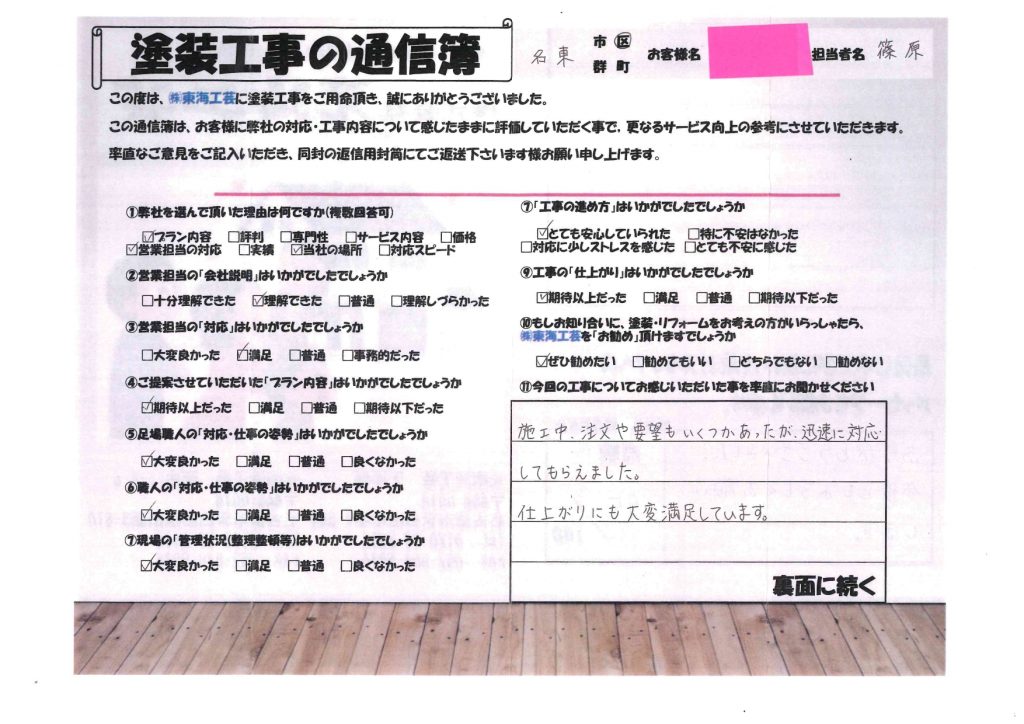 塗装工事の通信簿
名東 市 区 群 町 お客様名 担当者名 篠原
この度は、㈱東海工芸に塗装工事をご用命頂き、誠にありがとうございました。
この通信簿は、お客様に弊社の対応・工事内容について感じたままに評価していただく事で、更なるサービス向上の参考にさせていただきます。
率直なご意見をご記入いただき、同封の返信用封筒にてご返送下さいます様お願い申し上げます。
①弊社を選んで頂いた理由は何ですか(複数回答可)
☑プラン内容 □評判 □専門性 □サービス内容 □価格
☑営業担当の対応 □実績 ☑当社の場所 □対応スピード
②営業担当の「会社説明」はいかがでしたでしょうか
□十分理解できた ☑理解できた □普通 □理解しづらかった
③営業担当の「対応」はいかがでしたでしょうか
□大変良かった ☑満足 □普通 □事務的だった
④ご提案させていただいた「プラン内容」はいかがでしたでしょうか
☑期待以上だった □満足 □普通 □期待以下だった
⑤足場職人の「対応・仕事の姿勢」はいかがでしたでしょうか
☑大変良かった □満足 □普通 □良くなかった
⑥職人の「対応・仕事の姿勢」はいかがでしたでしょうか
☑大変良かった □満足 □普通 □良くなかった
⑦現場の「管理状況(整理整頓等)はいかがでしたでしょうか
☑大変良かった □満足 □普通 □良くなかった
⑦「工事の進め方」はいかがでしたでしょうか
☑とても安心していられた □特に不安はなかった
□対応に少しストレスを感じた □とても不安に感じた
⑨工事の「仕上がり」はいかがでしたでしょうか
☑期待以上だった □満足 □普通 □期待以下だった
⑩もしお知り合いに、塗装・リフォームをお考えの方がいらっしゃたら、
㈱東海工芸を「お勧め」頂けますでしょうか
☑ぜひ勧めたい □勧めてもいい □どちらでもない □勧めない
⑪今回の工事についてお感じいただいた事を率直にお聞かせください
施工中、注文や要望もいくつかあったが、迅速に対応
してもらえました。
仕上がりにも大変満足しています。
裏面に続く